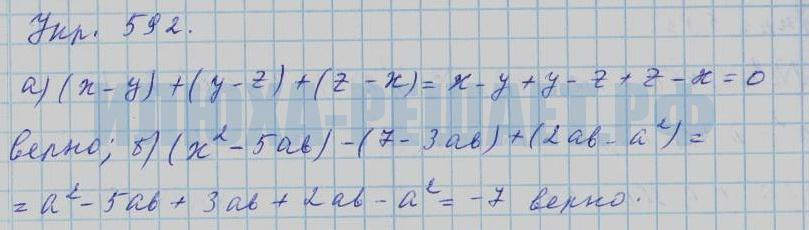 Упр. 592.
а) (x-y)+(y-z)+(z-x)=x-y+y-z+z-x=0
верно; б) (x²-5ab)-(7-3ab)+(2ab-a²)=
=a²-5ab+3ab+2ab-a²=-7 верно.
ИЛЮХА-РЕШАЕТ.РФ